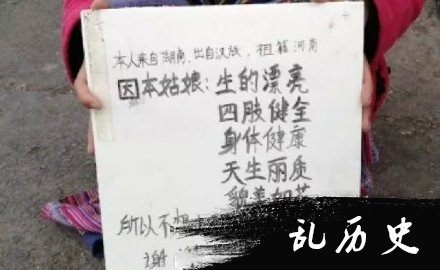 本人来自湖南，出自汉族，祖籍河南
因本姑娘：生的漂亮
四肢健全
身体健康
天生丽质
貌美如花
所以不想
谢
乱历史